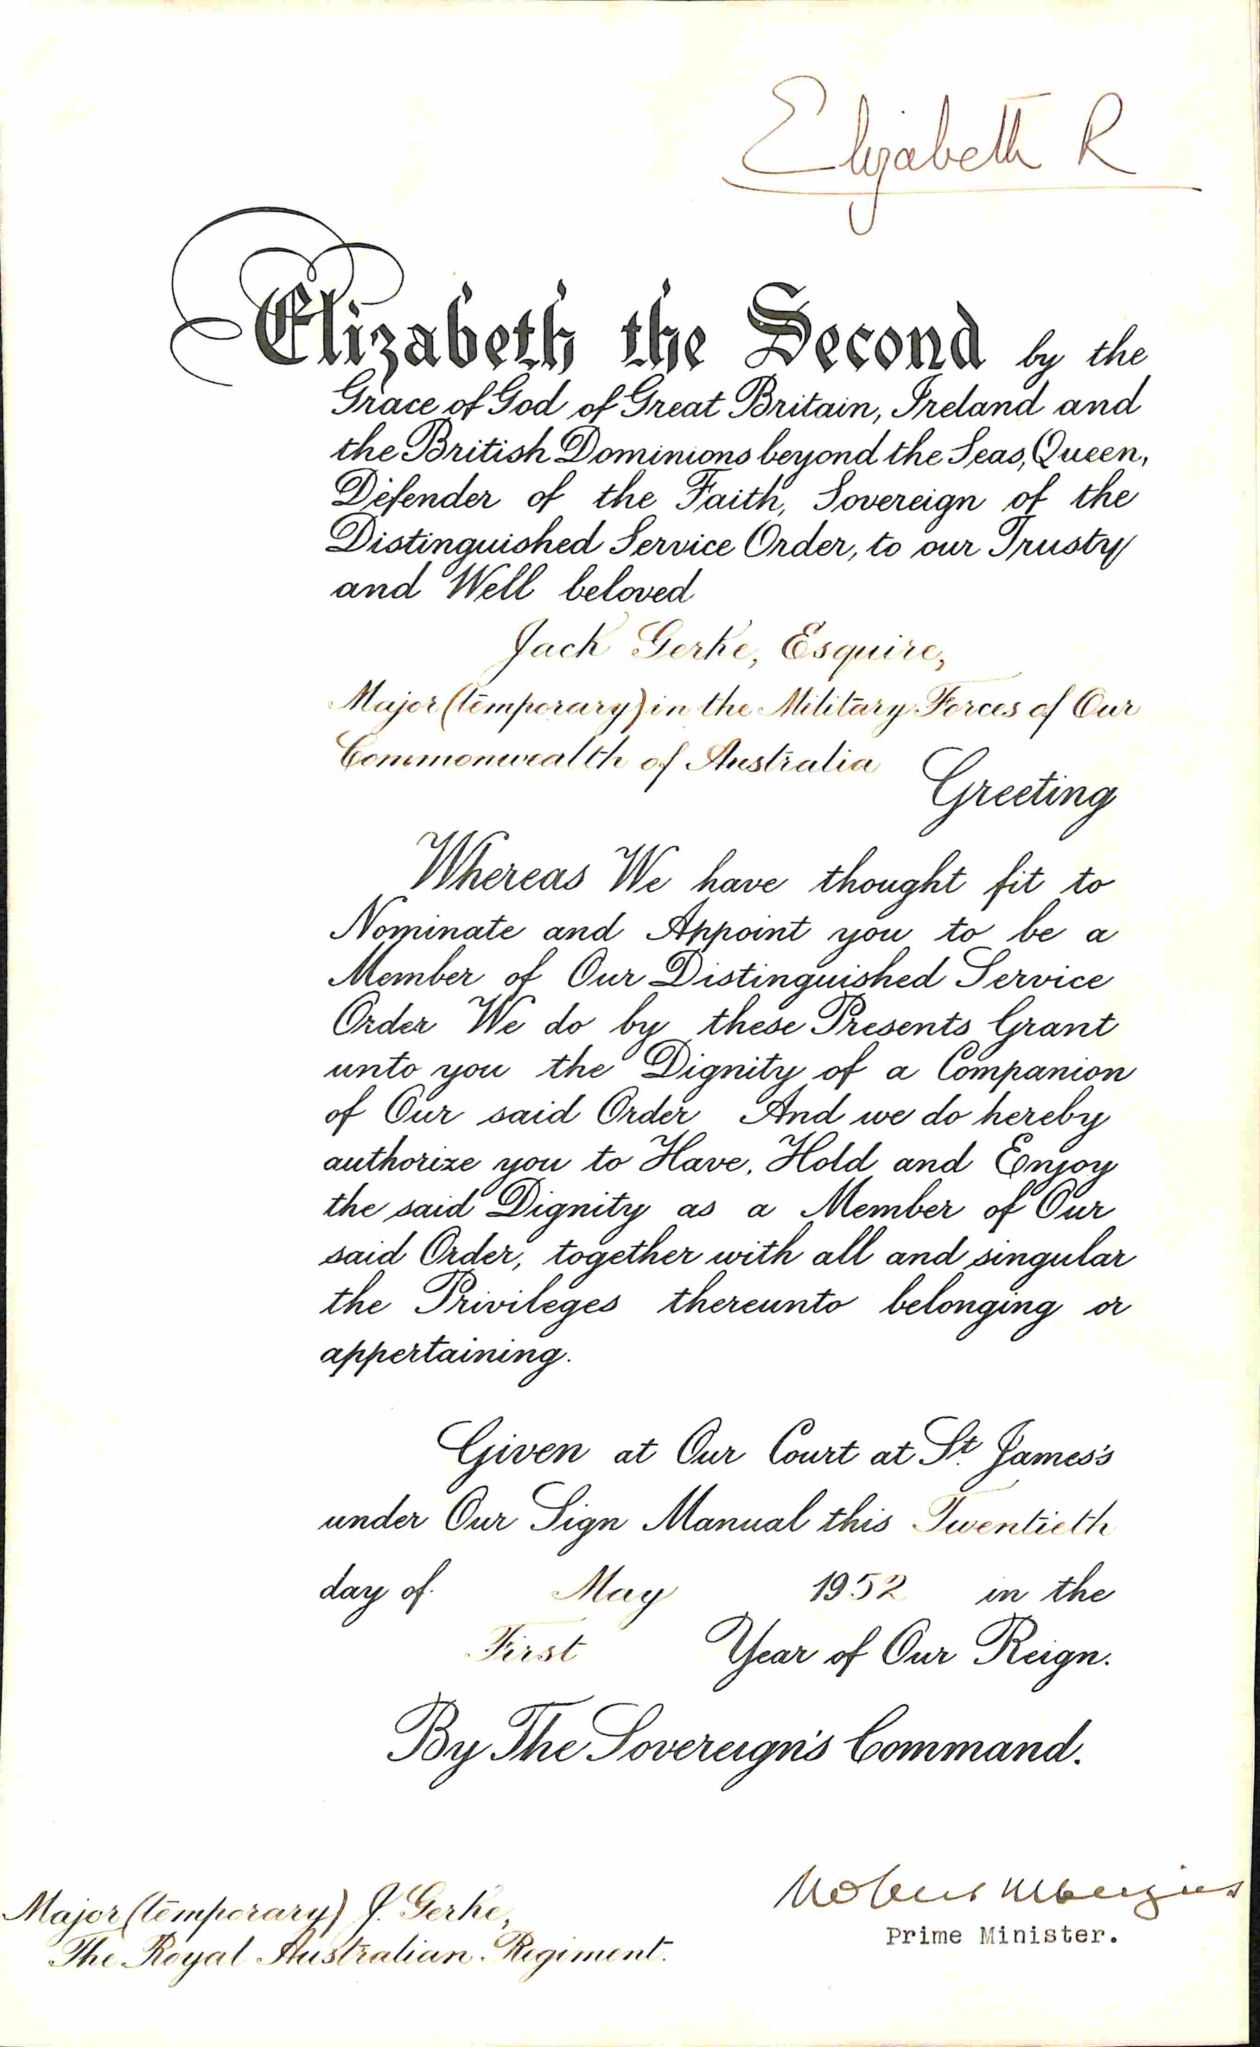 Elizabeth R
Elizabeth the Second by the
Grace of God of Great Britain, Ireland and
the British Dominions beyond the Seas, Queen,
Defender of the Faith, Sovereign of the
Distinguished Service Order, to our Trusty
and Well beloved
Jack Gerke, Esquire,
Major (temporary) in the Military Forces of Our
Commonwealth of Australia
Greeting
Whereas We have thought fit to
Nominate and Appoint you to be a
Member of Our Distinguished Service
Order We do by these Presents Grant
unto you the Dignity of a Companion
of Our said Order And we do hereby
authorize you to Have, Hold and Enjoy
the said Dignity as a Member of Our
said Order, together with all and singular
the Privileges thereunto belonging or
appertaining.
Given at Our Court at St. James's
under Our Sign Manual this Twentieth
day of May 1952 in the
First Year of Our Reign.
By The Sovereign's Command.
Robert Menzies
Prime Minister.
Major (temporary) J. Gerke,
The Royal Australian Regiment.